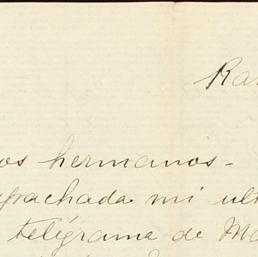 Ra
os hermanos-
spachada mi ult
telégrama de Ma